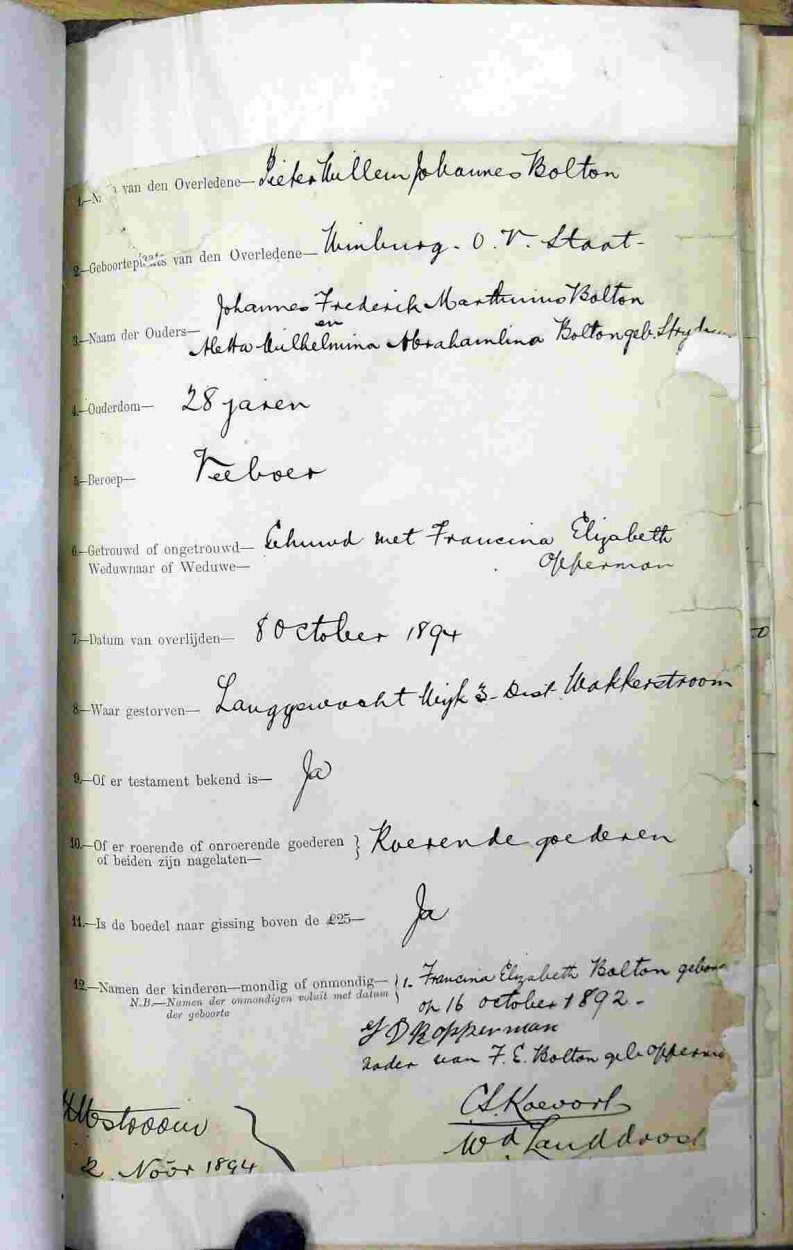 1.—N van den Overledene— Pieter Willem Johannes Bolton
2.—Geboorteplaats van den Overledene— Winburg - O. V. Staat -
Johannes Frederik Marthinus Bolton
3.—Naam der Ouders— en
Aletta Wilhelmina Abrahamlina Bolton geb. Strydom
4.—Ouderdom— 28 jaren
5.—Beroep— Veeboer
6.—Getrouwd of ongetrouwd— Gehuwd met Francina Elizabeth
Weduwnaar of Weduwe— Opperman
7.—Datum van overlijden— 8 October 1894
8.—Waar gestorven— Langgewacht Wijk 3 - Dist. Wakkerstroom
9.—Of er testament bekend is— Ja
10.—Of er roerende of onroerende goederen } Roerende goederen
of beiden zijn nagelaten—
11.—Is de boedel naar gissing boven de £25— Ja
12.—Namen der kinderen—mondig of onmondig— { 1. Francina Elizabeth Bolton geboren
N.B.—Namen der onmondigen voluit met datum
der geboorte
op 16 October 1892 -
Opperman
vader van F. E. Bolton geb. Opperman
C.S. Koevort
Wd. Landdrost
Wstroom
2 Novr 1894